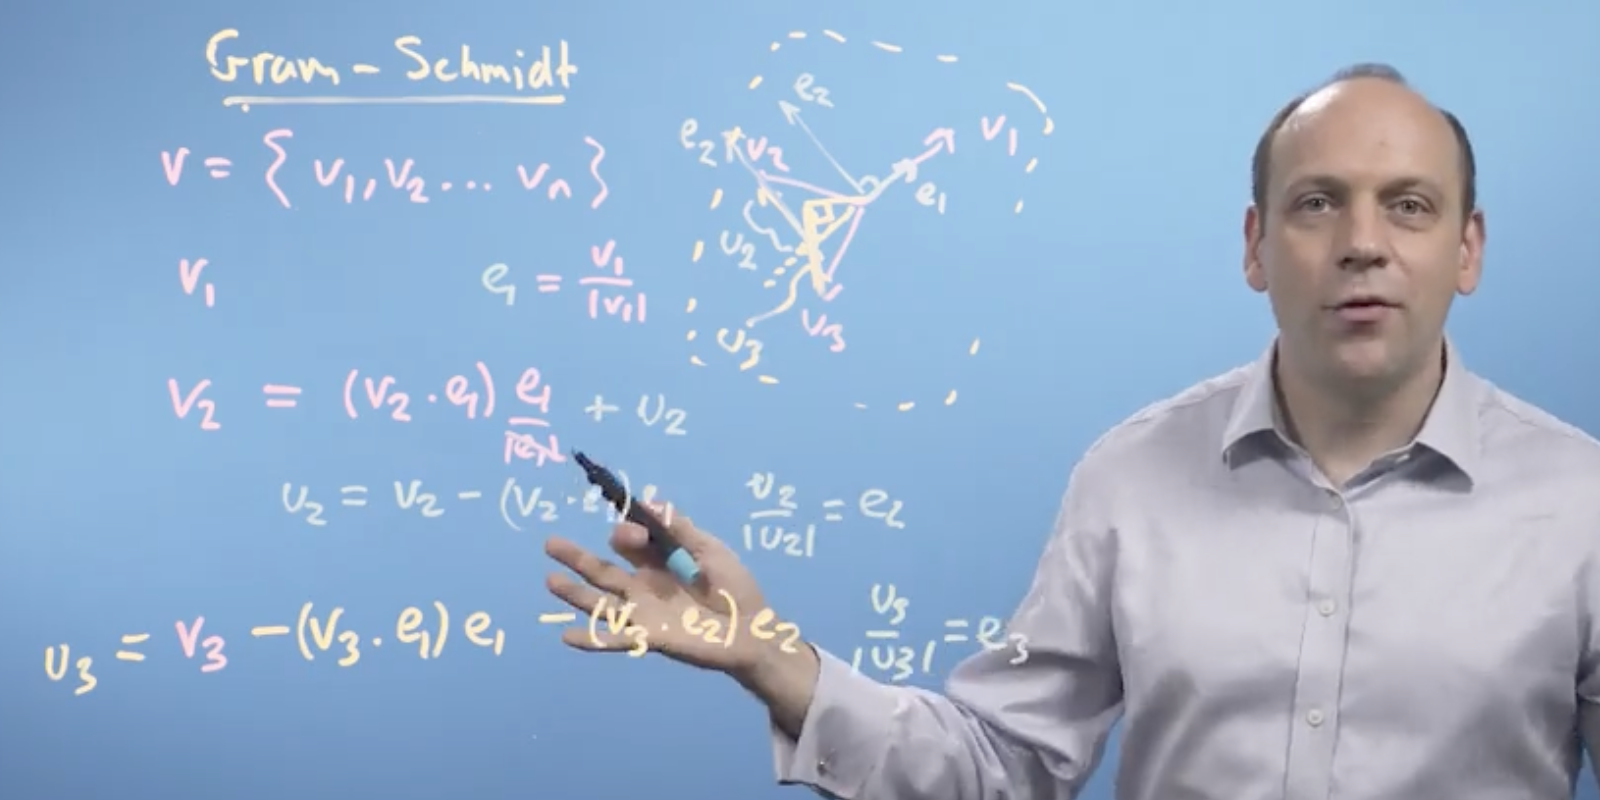 Gram - Schmidt
V = { V1, V2 ... Vn }
V1
e1 = V1 / |V1|
V2 = (V2 . e1) e1 / |e1| + U2
U2 = V2 - (V2 . e1) e1
U2 / |U2| = e2
U3 = V3 - (V3 . e1) e1 - (V3 . e2) e2
U3 / |U3| = e3
e2
e2
V2
V1
e1
U2
U3
V3